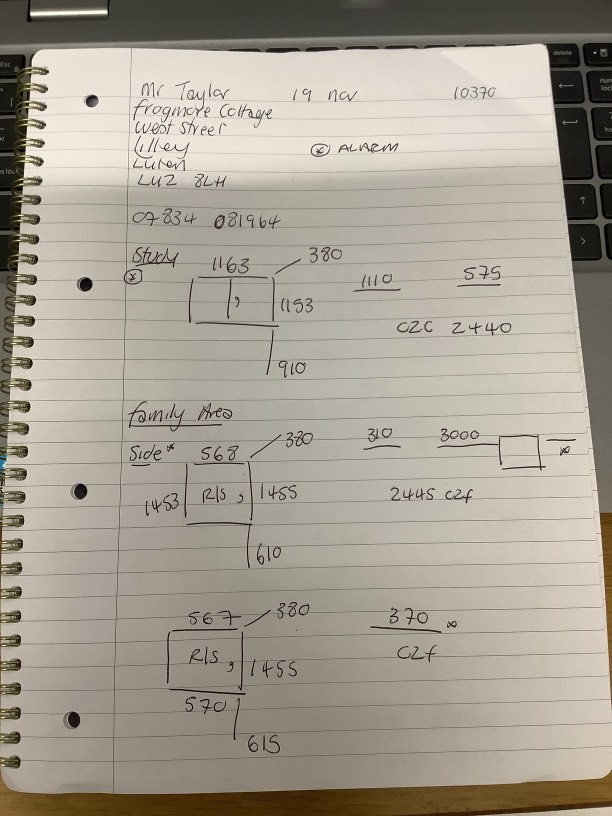 Mr Taylor 19 Nov 10370
Frogmore Cottage
West Street
Lilley * ALARM
Luton
LU2 8LH
07834 081964
Study 1163 380 1110 575
* 1153 C2C 2440
910
Family Area
Side* 568 380 310 3000 ∞
1453 R/S, 1455 2445 C2F
610
567 380 370 ∞
R/S, 1455 C2F
570
615